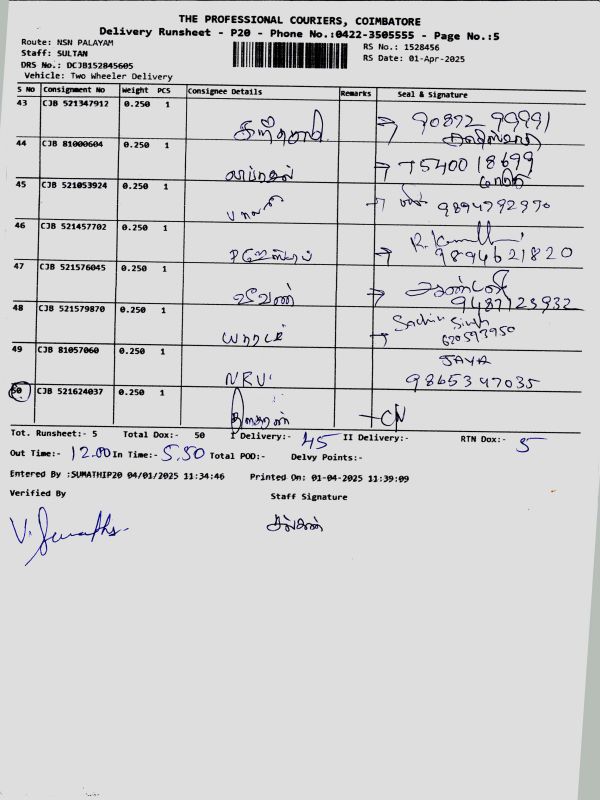 THE PROFESSIONAL COURIERS, COIMBATORE
Delivery Runsheet - P20 - Phone No.:0422-3505555 - Page No.:5
Route: NSN PALAYAM
Staff: SULTAN
DRS No.: DCJB152845605
Vehicle: Two Wheeler Delivery
RS No.: 1528456
RS Date: 01-Apr-2025
S No Consignment No Weight PCS Consignee Details Remarks Seal & Signature
43 CJB 521347912 0.250 1
90872 99991
44 CJB 81000604 0.250 1
75400 18699
45 CJB 521053924 0.250 1
9894792970
46 CJB 521457702 0.250 1
9894621820
47 CJB 521576045 0.250 1
9487123932
48 CJB 521579870 0.250 1
Sachin Singh
620593950
49 CJB 81057060 0.250 1 NRV JAYA
9865347035
50 CJB 521624037 0.250 1 CN
Tot. Runsheet:- 5 Total Dox:- 50 I Delivery:- 45 II Delivery:- RTN Dox:- 5
Out Time:- 12.00 In Time:- 5.50 Total POD:- Delvy Points:-
Entered By :SUMATHIP20 04/01/2025 11:34:46 Printed On: 01-04-2025 11:39:09
Verified By Staff Signature